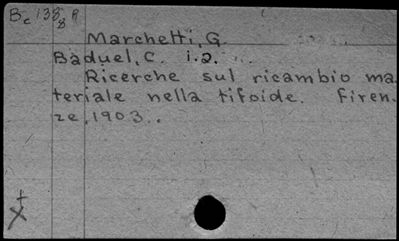 Bc 138 8 R
Marchetti, G.
Baduel, C. i.e.
Ricerche sul ricambio ma
teriale nella tifoide. Firen-
ze, 1903..